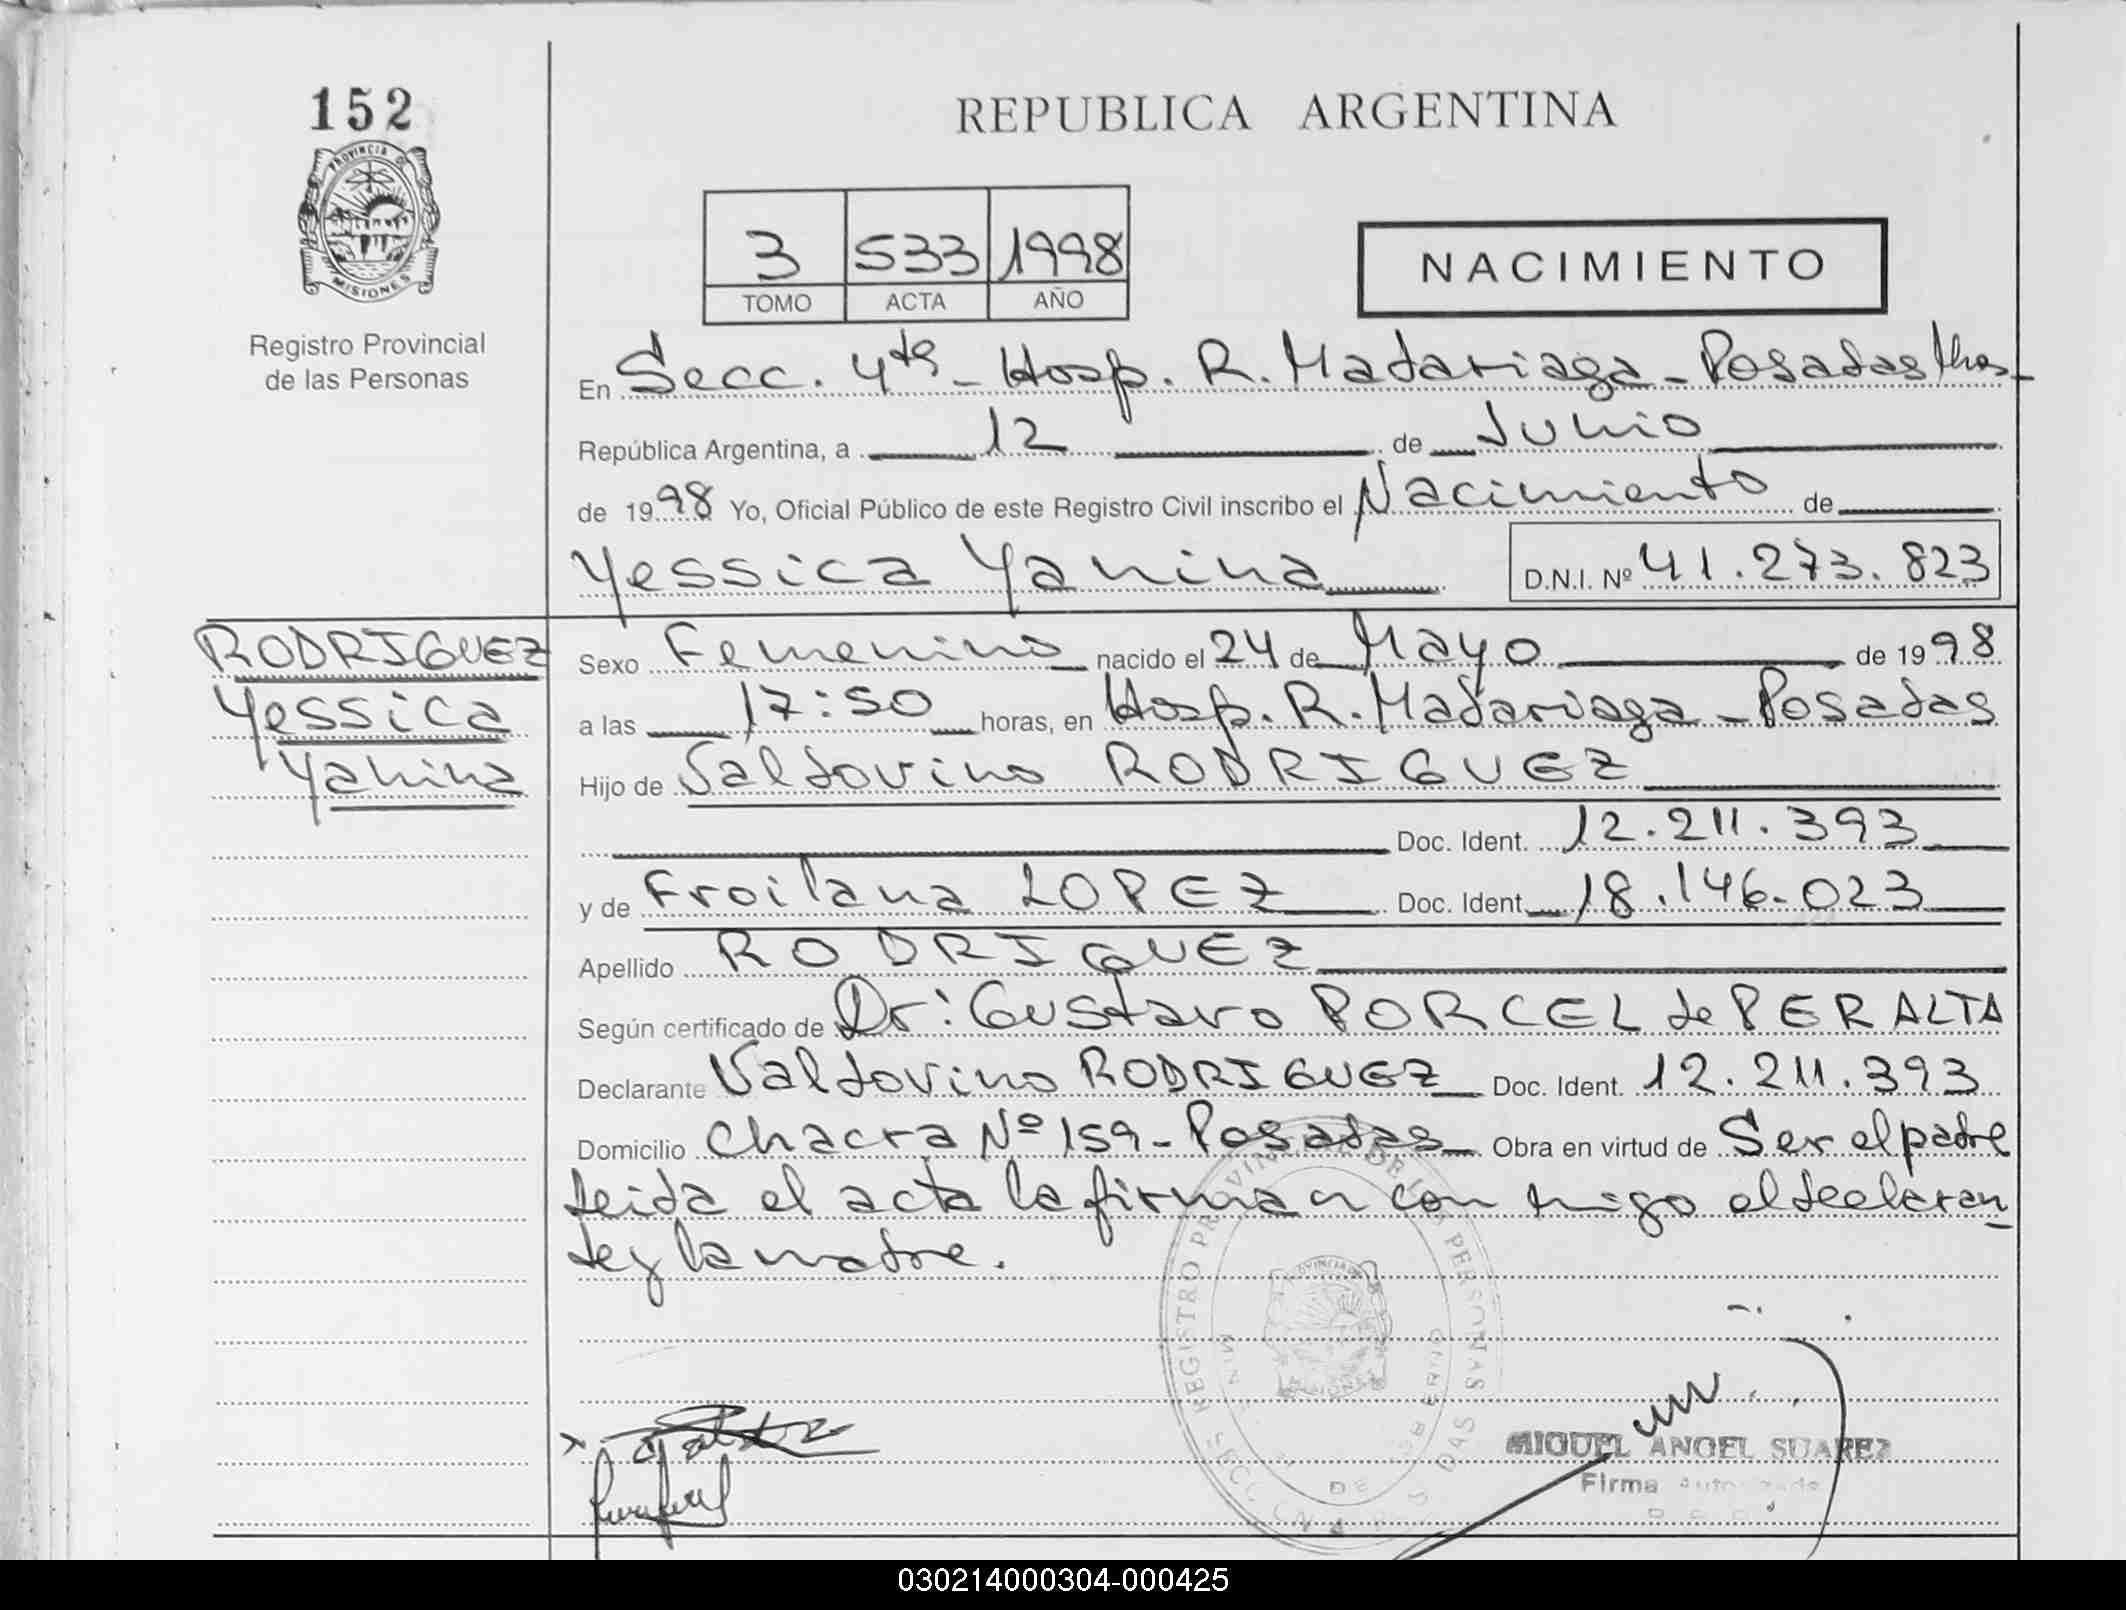 152
PROVINCIA DE
MISIONES
Registro Provincial
de las Personas
REPUBLICA ARGENTINA
3 533 1998
TOMO ACTA AÑO
NACIMIENTO
En Secc. 4ta - Hosp. R. Madariaga - Posadas Mnes
República Argentina, a 12 de Junio
de 1998 Yo, Oficial Público de este Registro Civil inscribo el Nacimiento de
Yessica Yanina D.N.I. Nº 41.273.823
RODRIGUEZ
Yessica
Yanina
Sexo Femenino nacido el 24 de Mayo de 1998
a las 17:50 horas, en Hosp. R. Madariaga - Posadas
Hijo de Valdovino RODRIGUEZ
Doc. Ident. 12.211.393
y de Froilana LOPEZ Doc. Ident. 18.146.023
Apellido RODRIGUEZ
Según certificado de Dr: Gustavo PORCEL de PERALTA
Declarante Valdovino RODRIGUEZ Doc. Ident. 12.211.393
Domicilio Chacra Nº 159 - Posadas Obra en virtud de Ser el padre
leida el acta la firman con migo el declaran
te y la madre.
REGISTRO PROVINCIAL DE LAS PERSONAS
MIGUEL ANGEL SUAREZ
Firma Autorizada
030214000304-000425